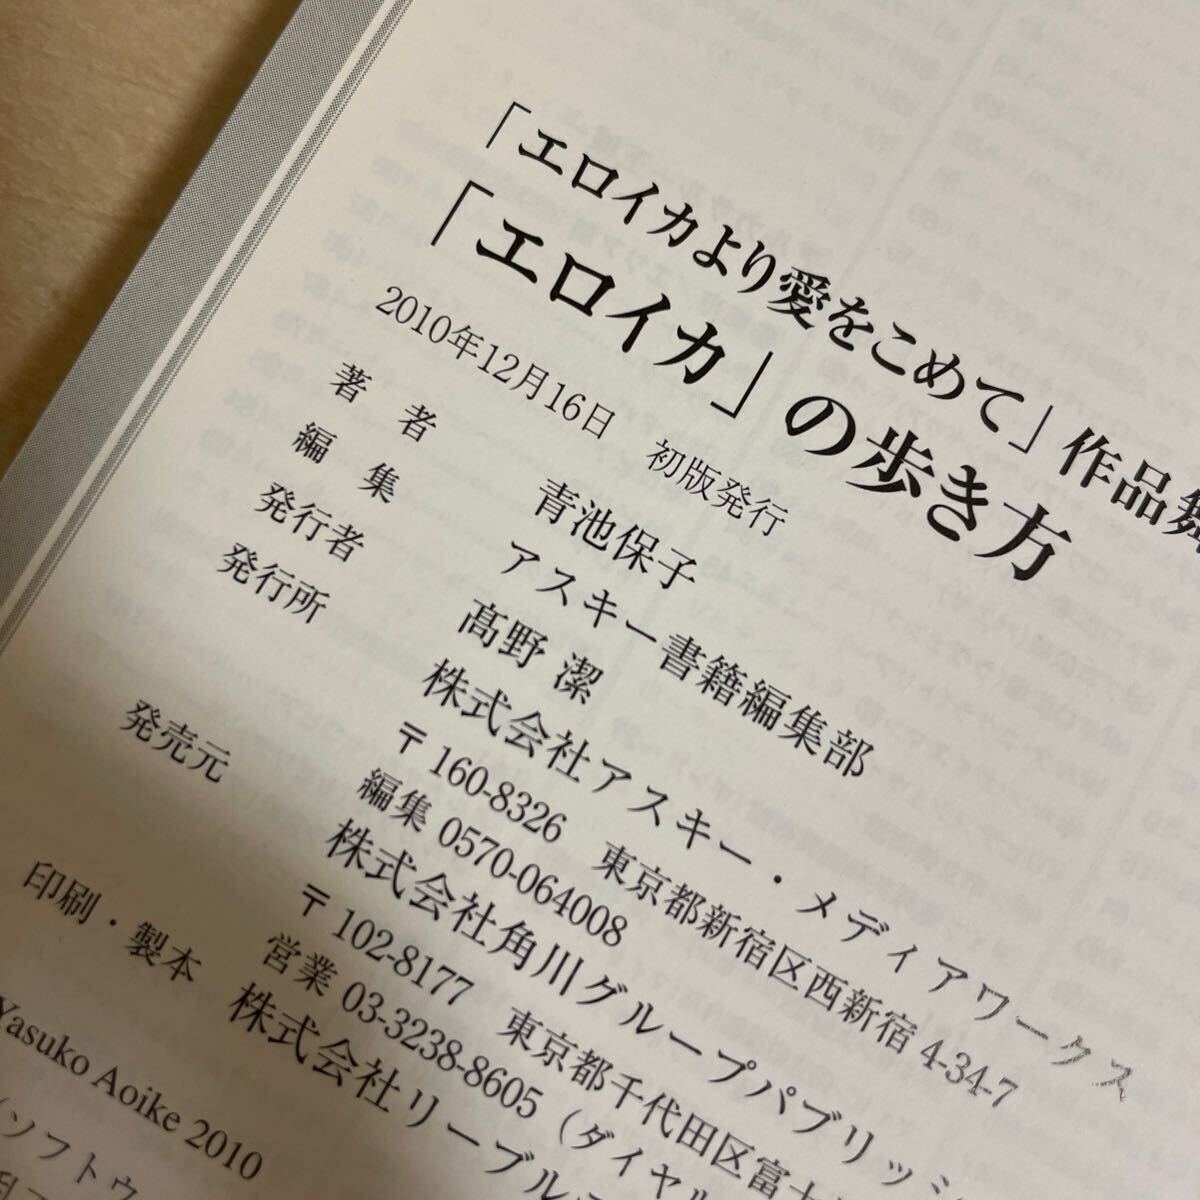 「エロイカより愛をこめて」作品舞
「エロイカ」の歩き方
2010年12月16日 初版発行
著者 青池保子
編集 アスキー書籍編集部
発行者 髙野 潔
発行所 株式会社アスキー・メディアワークス
〒160-8326 東京都新宿区西新宿4-34-7
編集 0570-064008
発売元 株式会社角川グループパブリッシ
〒102-8177 東京都千代田区富士
営業 03-3238-8605（ダイヤル
印刷・製本 株式会社リーブル
Yasuko Aoike 2010
（ソフトウ